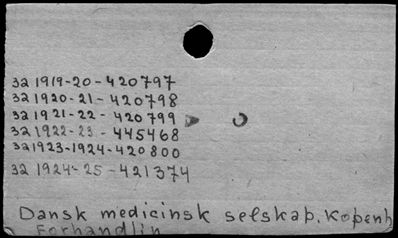 32 1919-20-420797
32 1920-21-420798
32 1921-22-420799
32 1922-23-445468
32 1923-1924-420800
32 1924-25-421374
Dansk medicinsk selskab. Kopenh
Forhandlin